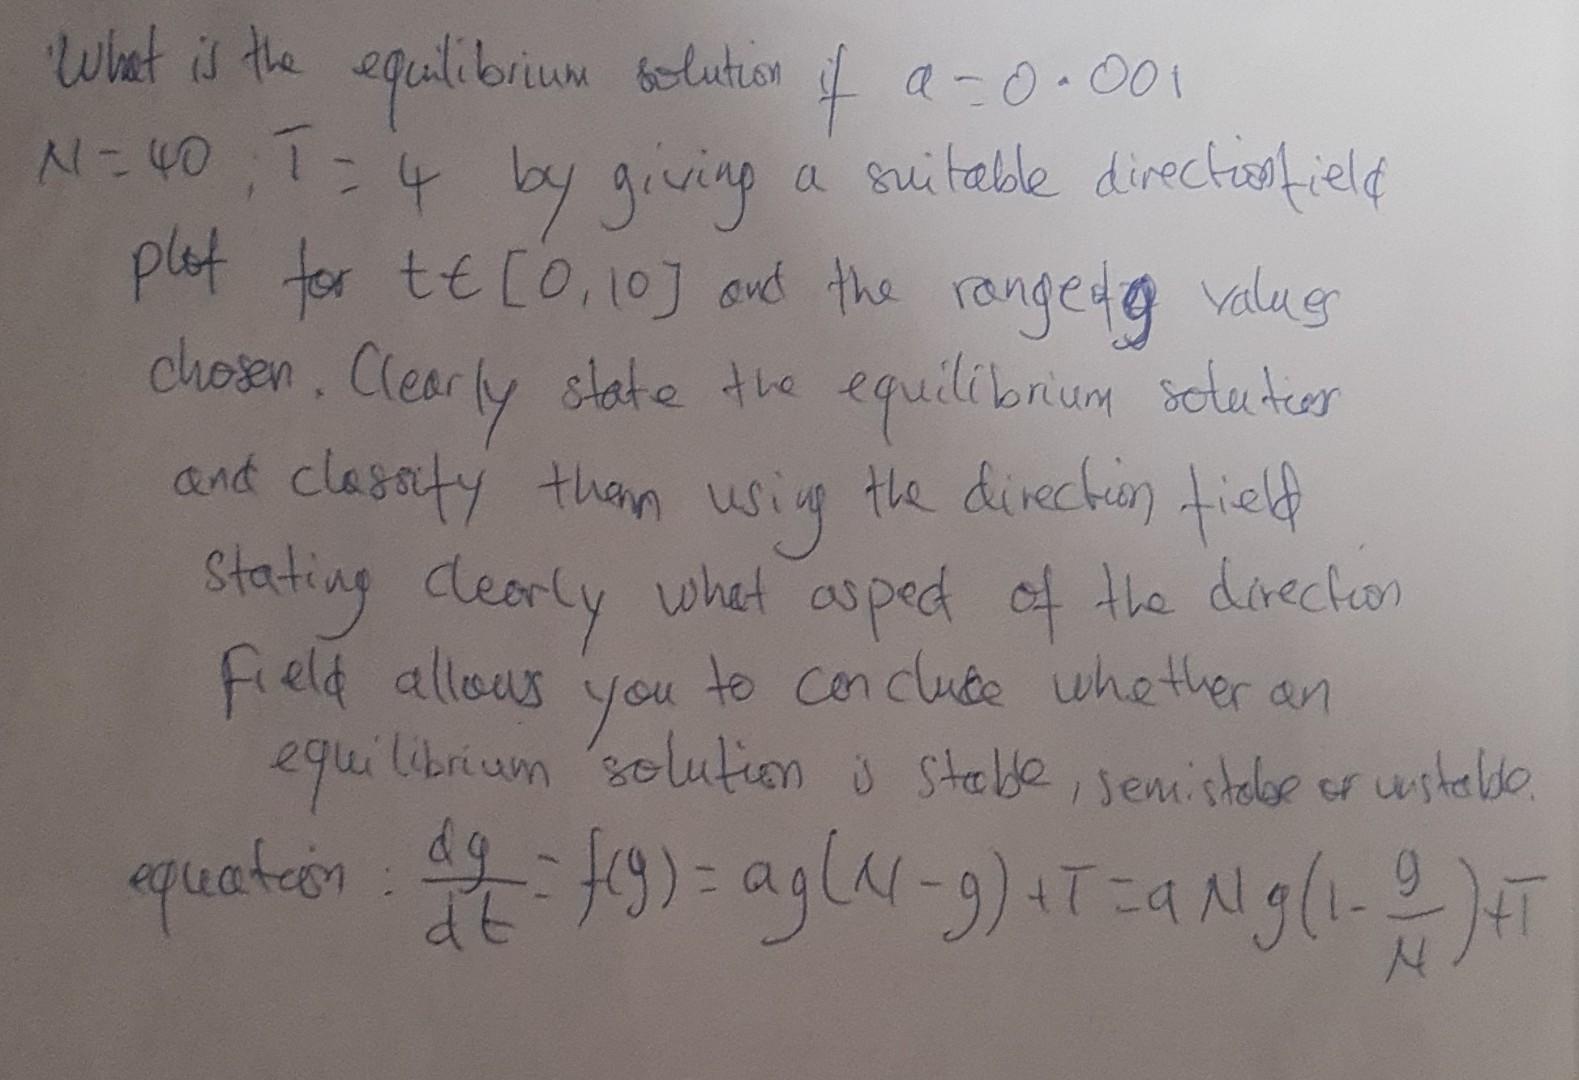 What is the equilibrium solution if a = 0.001
N = 40, T = 4 by giving a suitable direction field
plot for t ∈ [0,10] and the range of g values
chosen. Clearly state the equilibrium solution
and classify them using the direction field
stating clearly what aspect of the direction
field allows you to conclude whether an
equilibrium solution is stable, semistable or unstable.
equation : dg/dt = f(g) = ag(N - g) + T = a N g(1 - g/N) + T